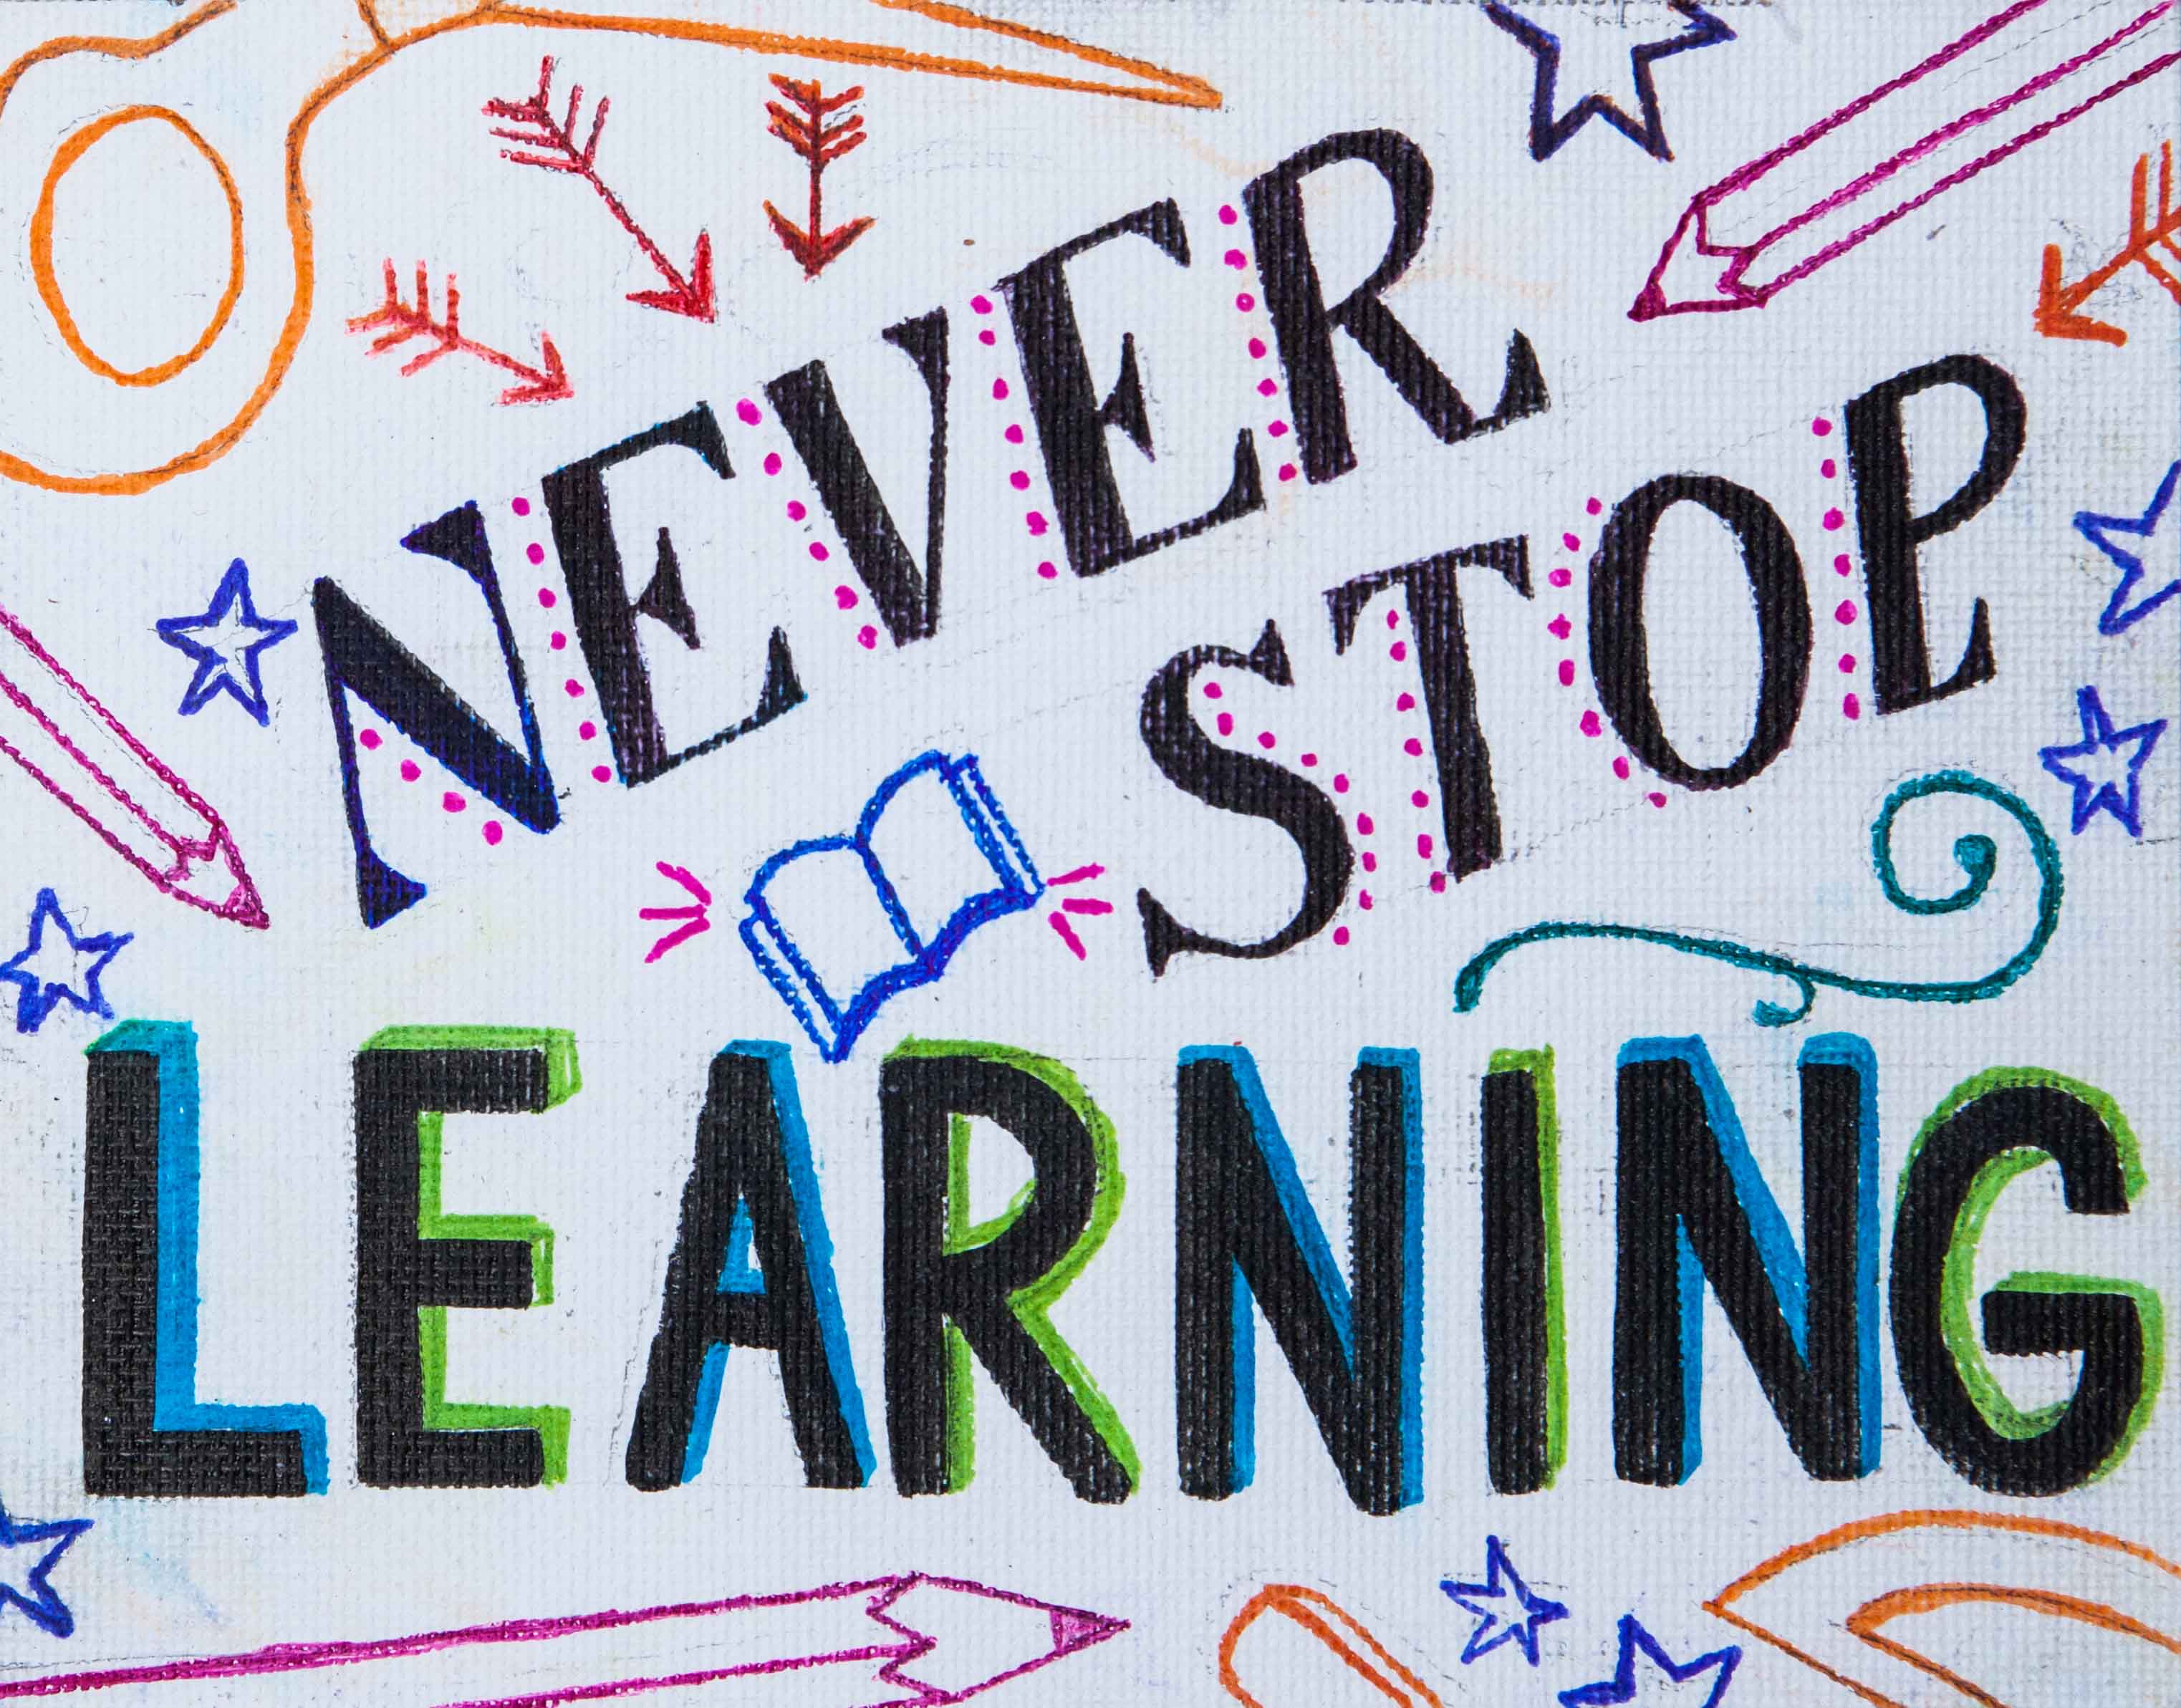 NEVER
STOP
LEARNING